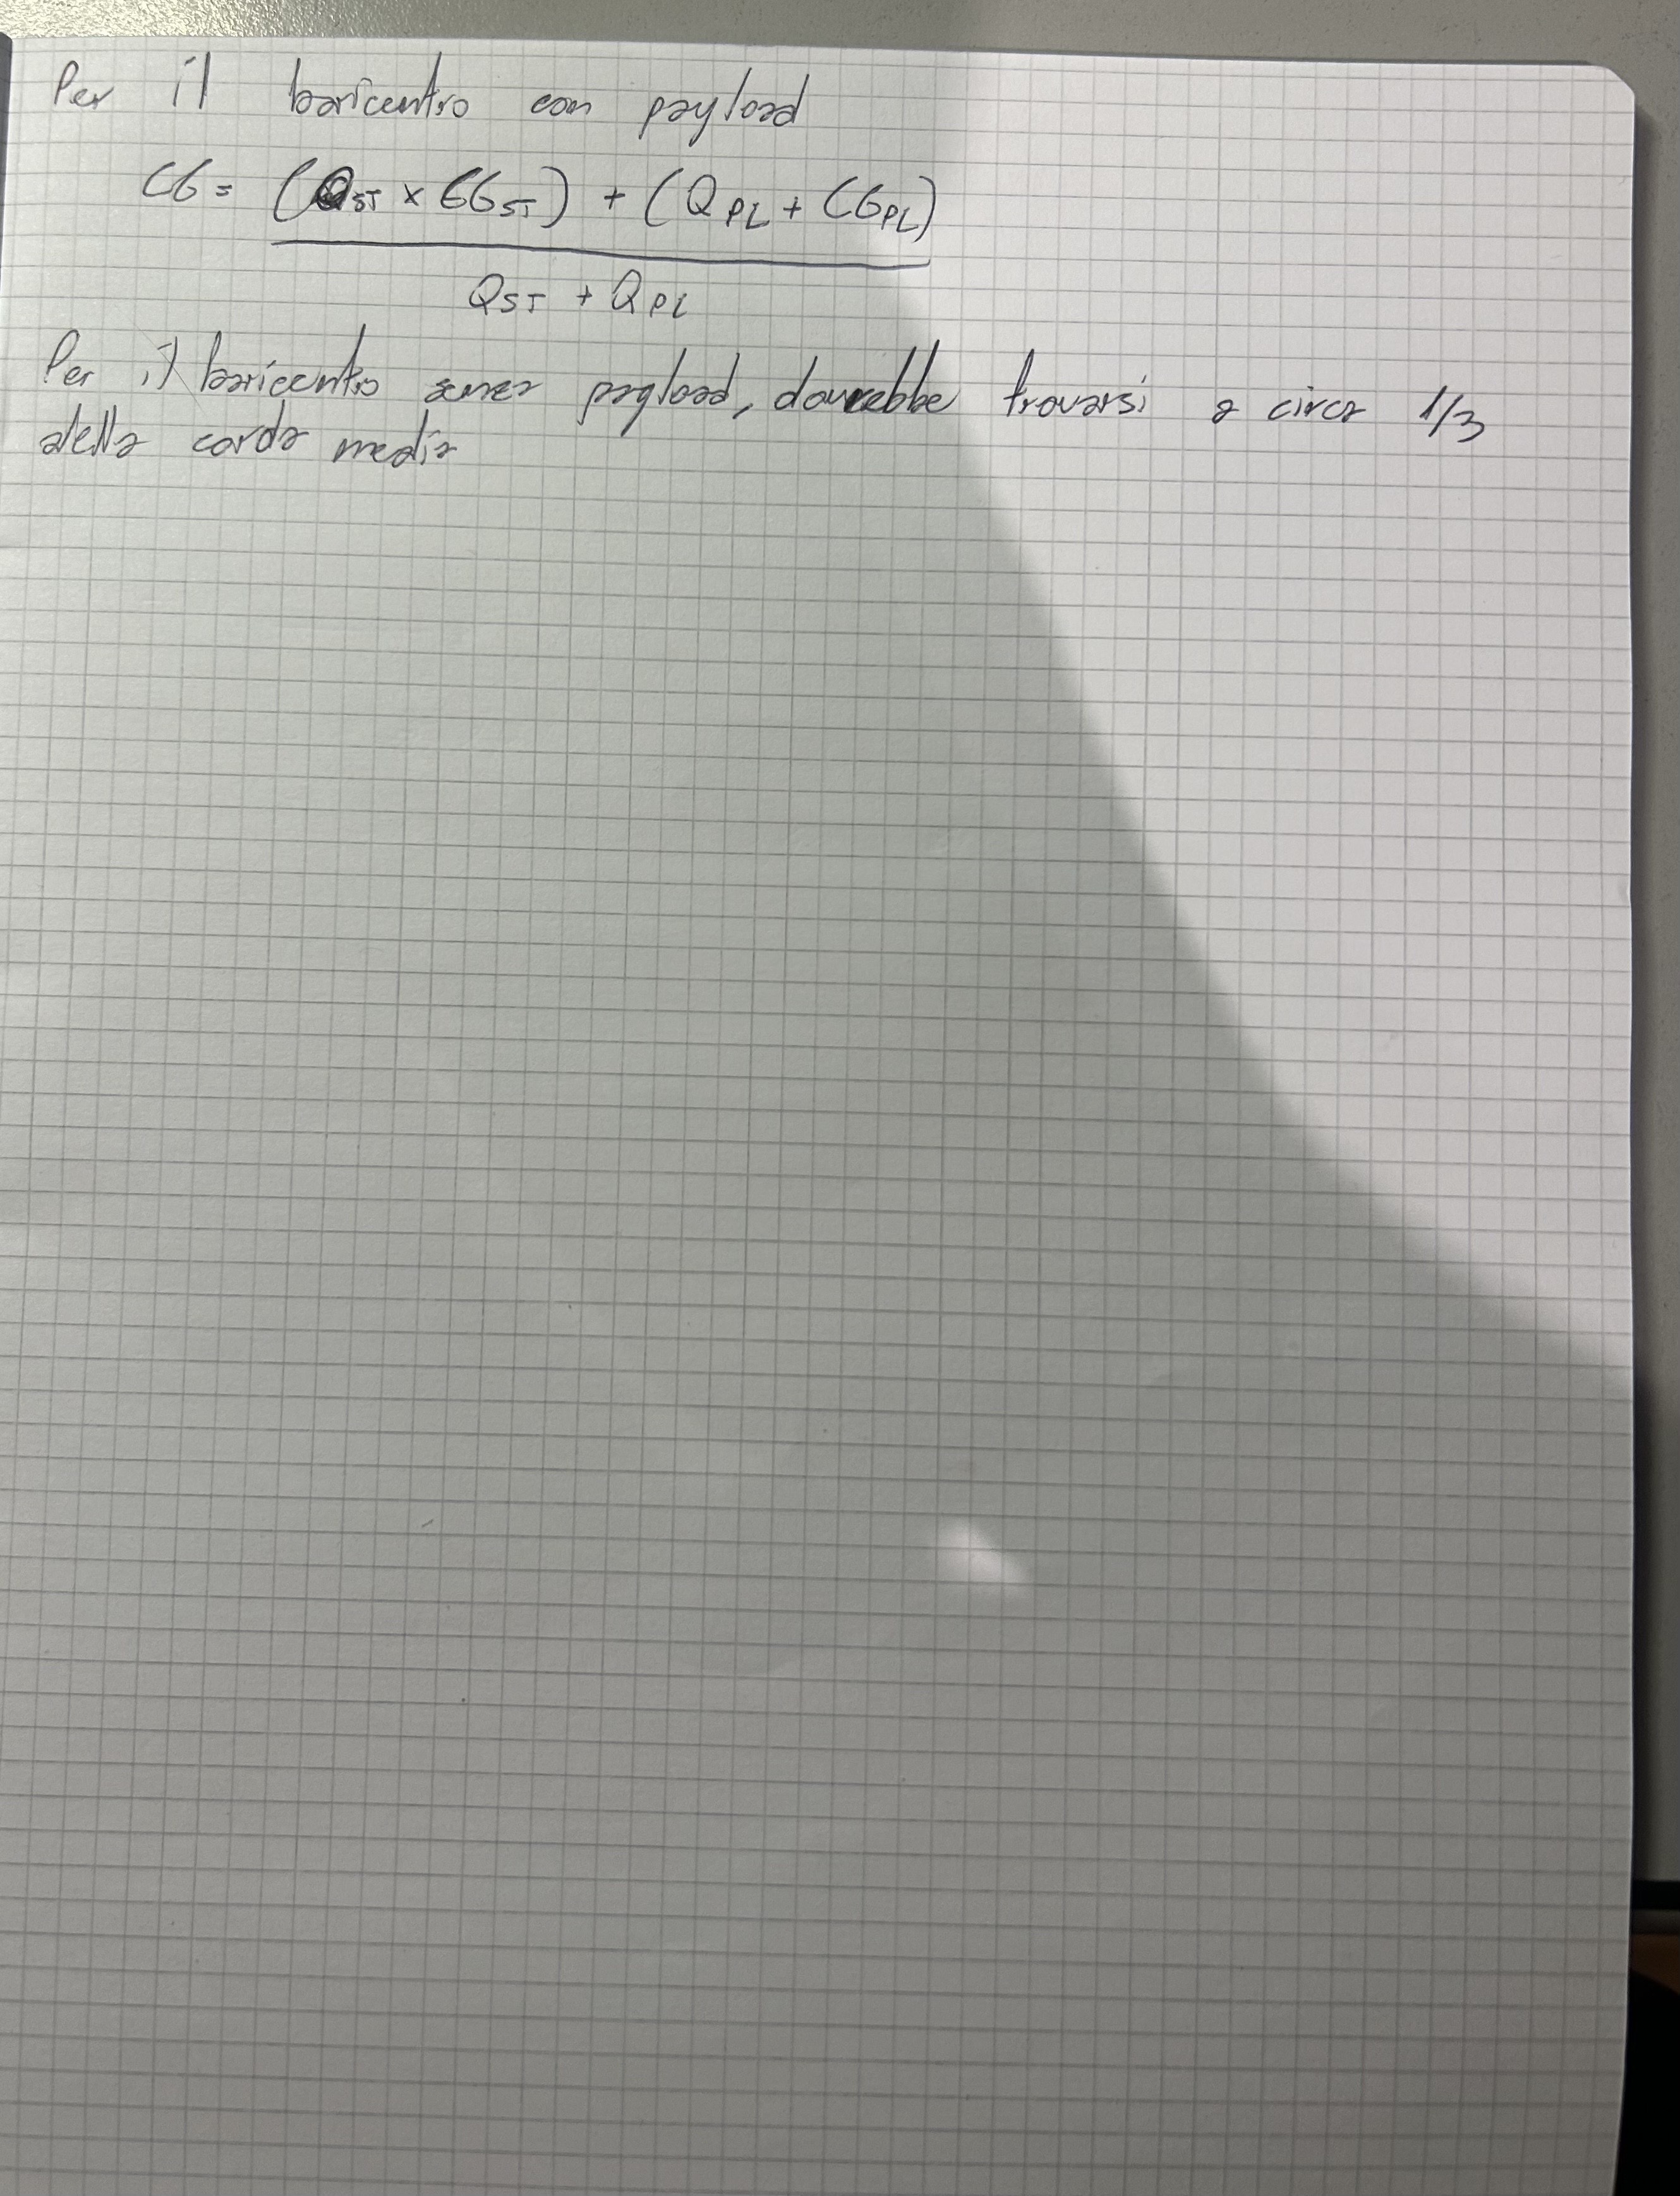 Per il baricentro con payload
CG = (QST × CGST) + (QPL + CGPL)
QST + QPL
Per il baricentro senza payload, dovrebbe trovarsi a circa 1/3
della corda media